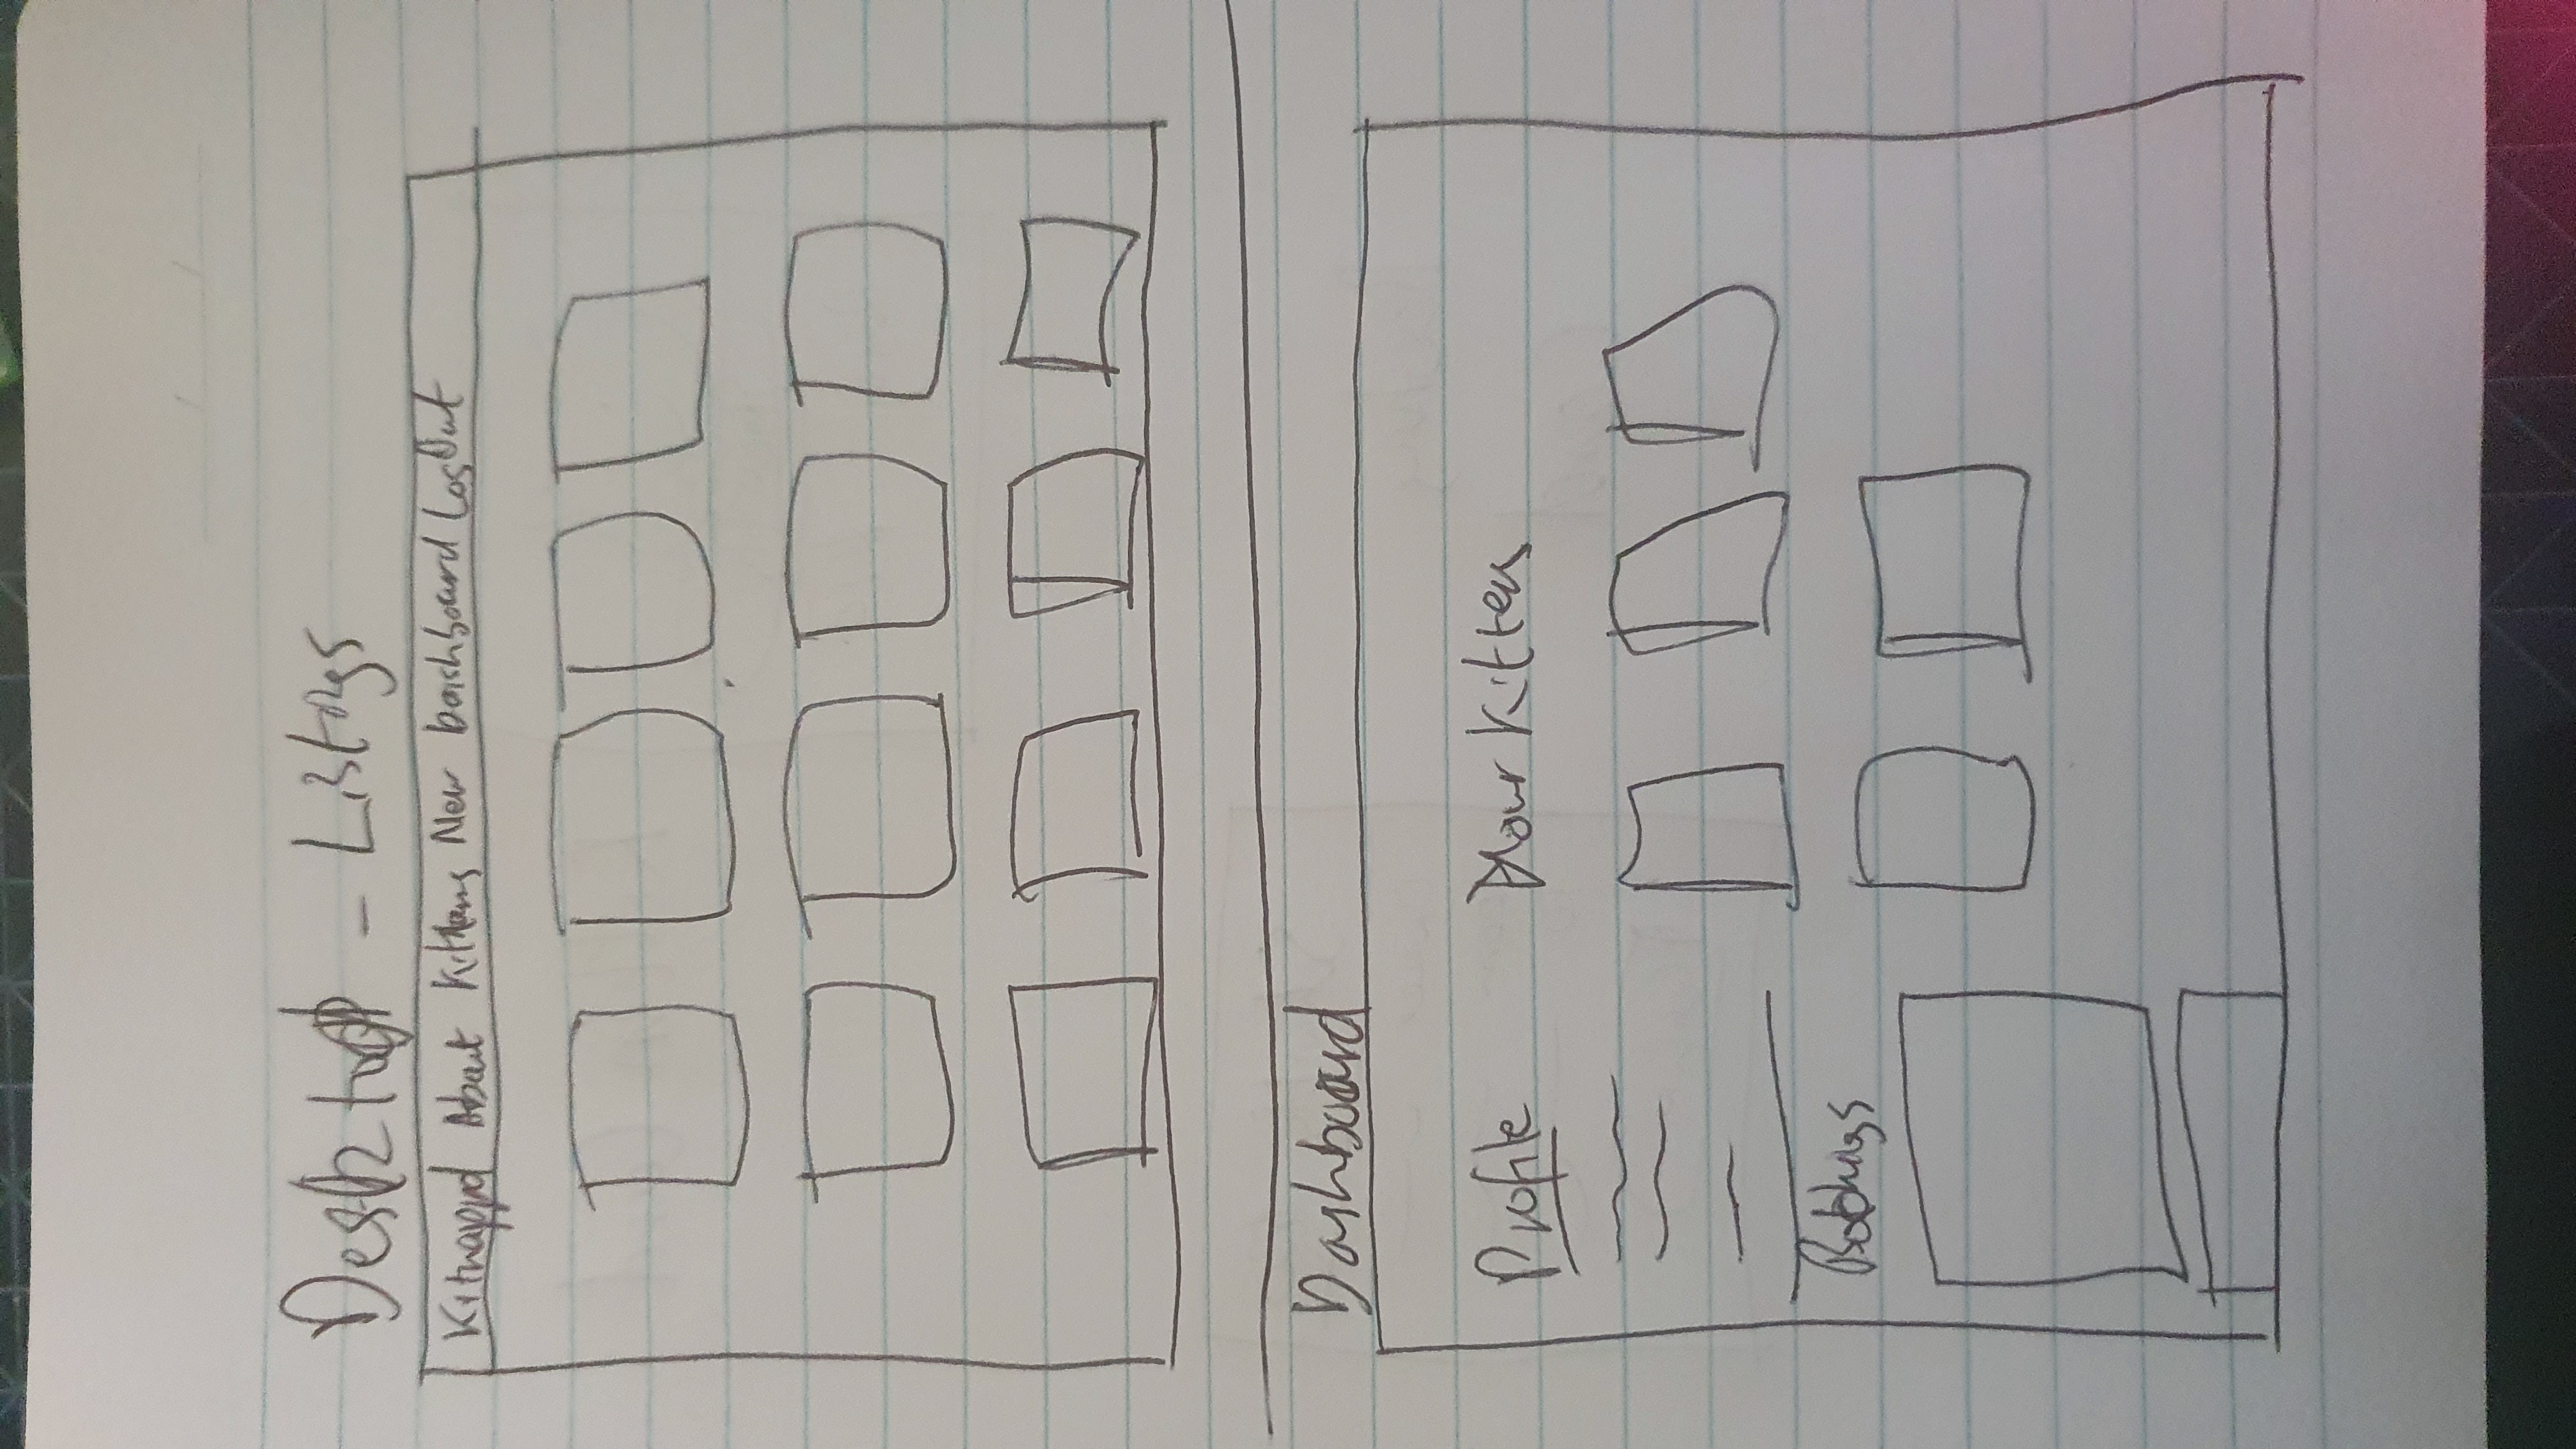 Desktop - Listings
Kitnappd About Kittens New Dashboard LogOut
Dashboard
Profile
Your Kittens
Bookings